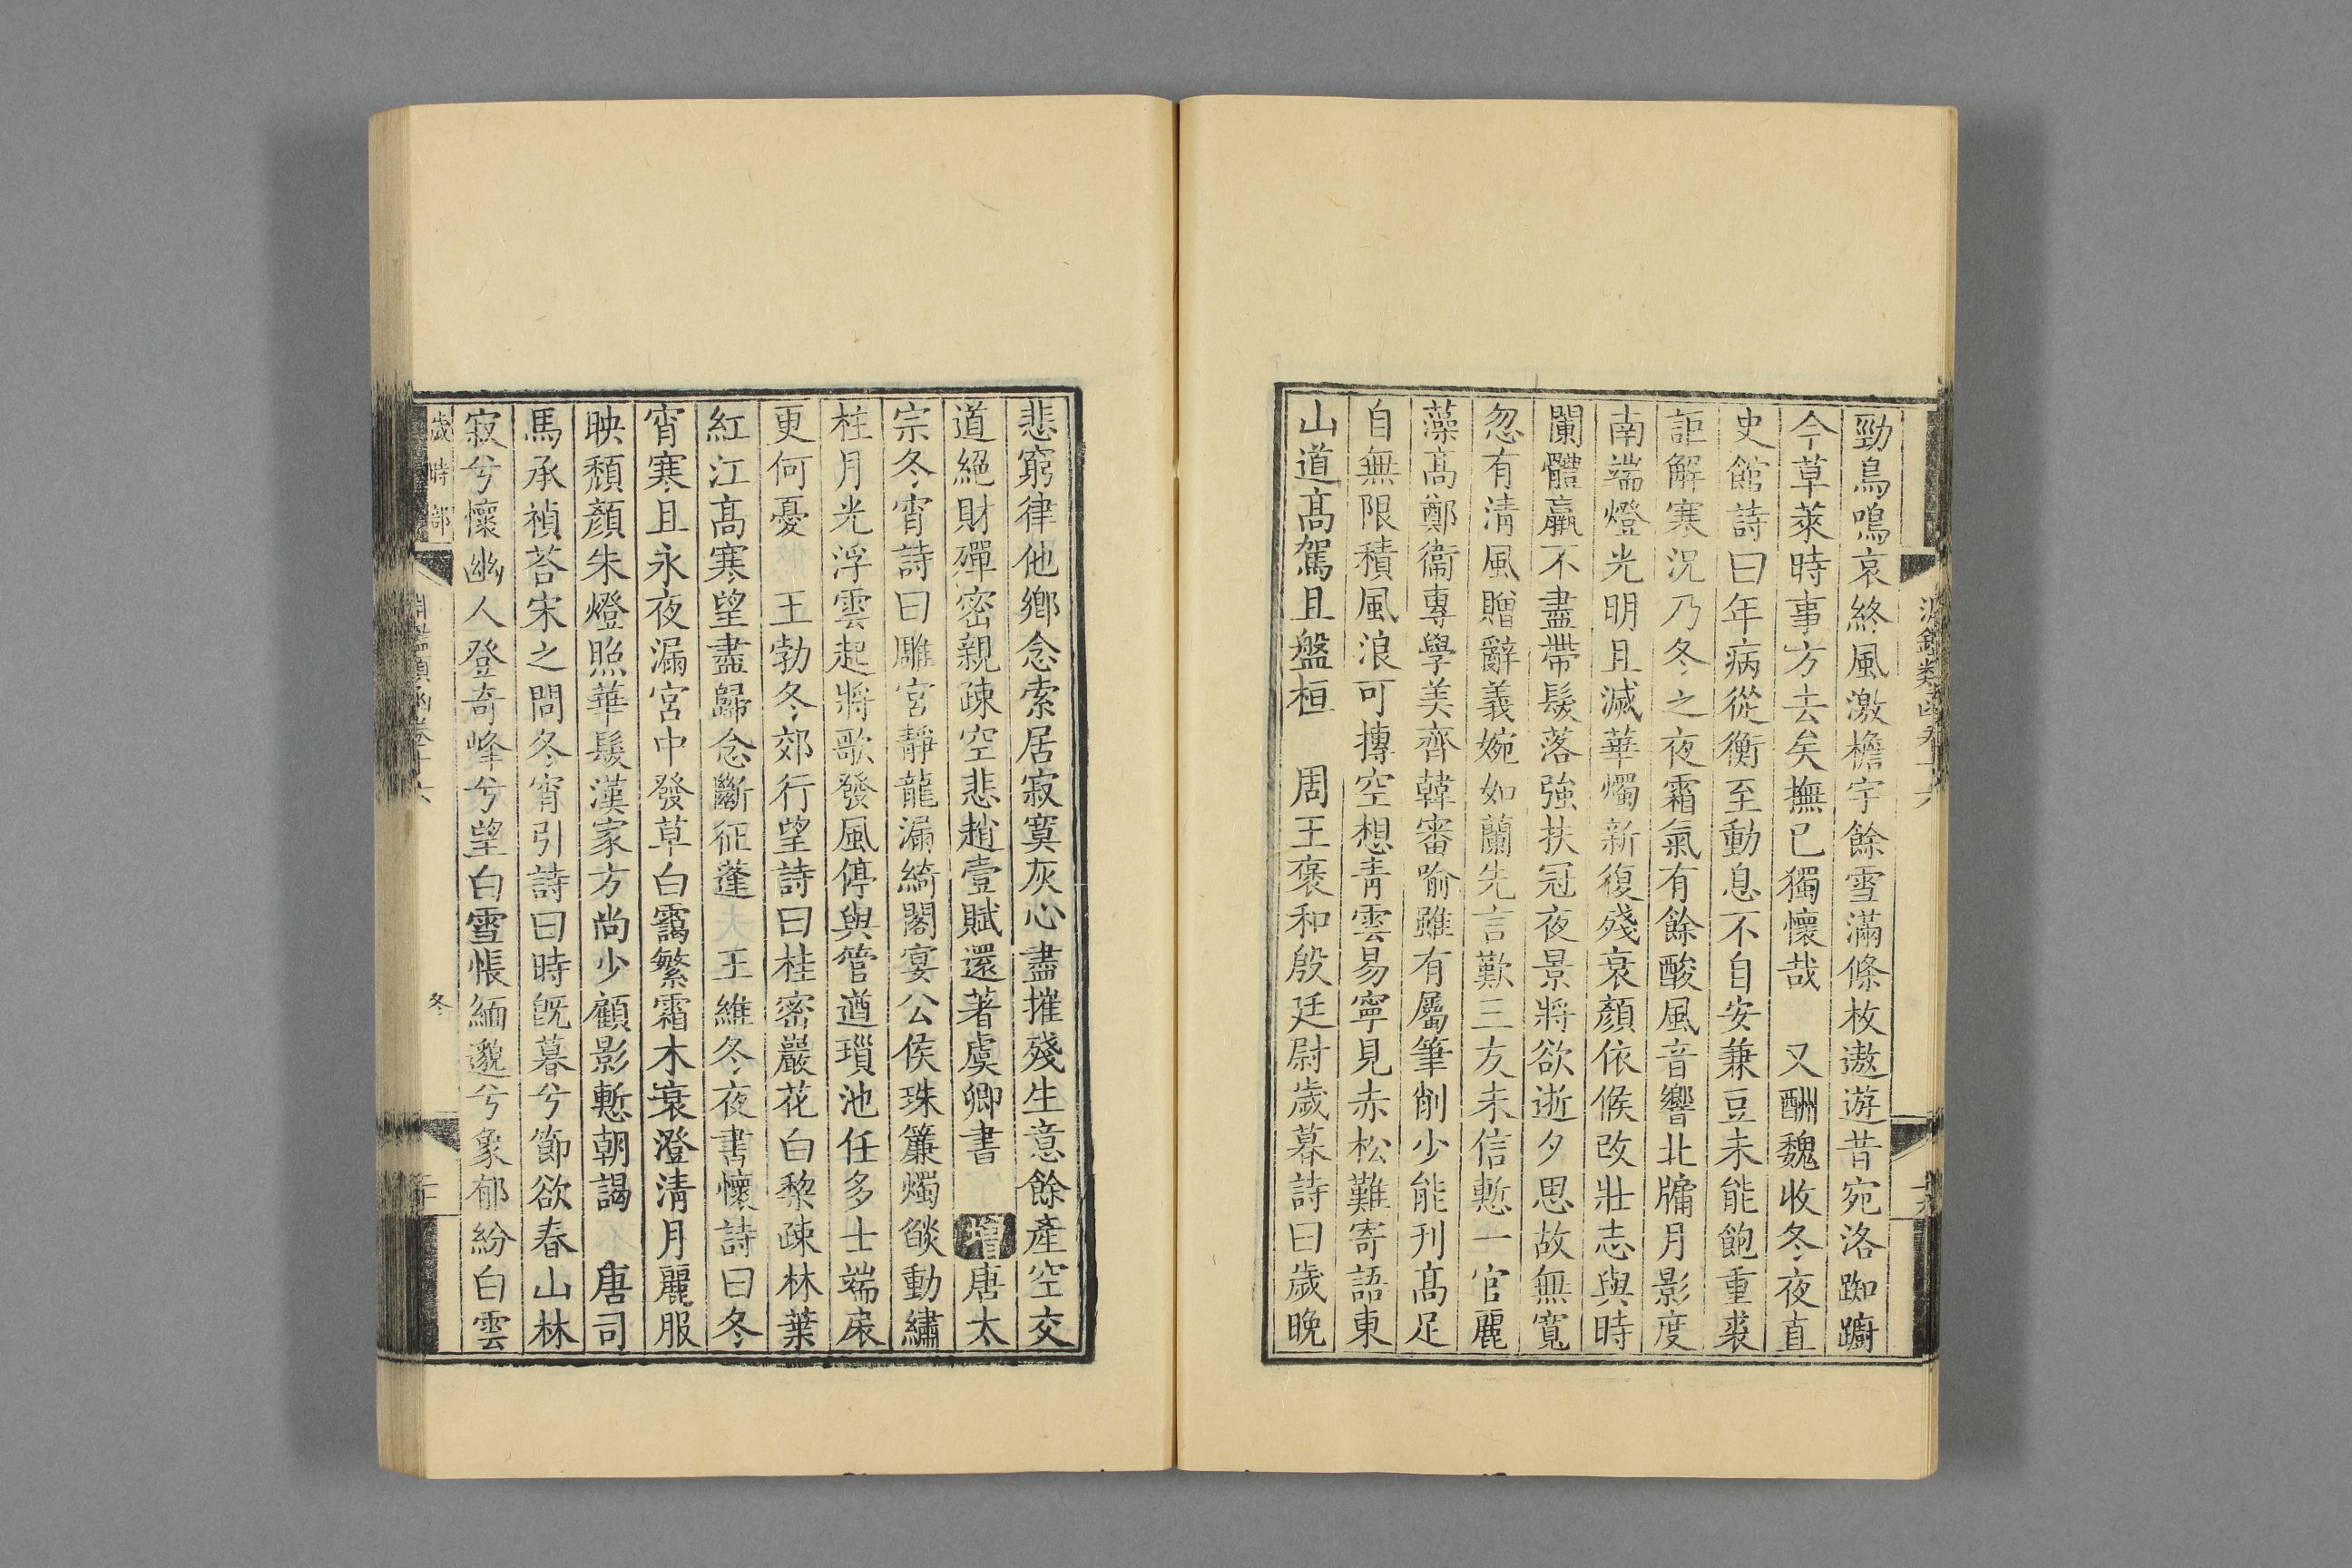 勁鳥鳴哀終風激檐宇餘雪滿條枚遨遊昔宛洛踟躕
今草萊時事方去矣撫已獨懷哉　又酬魏收冬夜直
史館詩曰年病從衡至動息不自安兼豆未能飽重裘
詎解寒況乃冬之夜霜氣有餘酸風音響北牖月影度
南端燈光明且滅華燭新復殘衰顏依候改壯志與時
闌體羸不盡帶髮落強扶冠夜景將欲逝夕思故無寬
忽有清風贈辭義婉如蘭先言歎三友未信慙一官麗
藻高鄭衞專學美齊韓審喻雖有屬筆削少能刊高足
自無限積風浪可摶空想青雲易寧見赤松難寄語東
山道高駕且盤桓　周王褒和殷廷尉歲暮詩曰歲晚
悲窮律他鄉念索居寂寞灰心盡摧殘生意餘產空交
道絕財殫密親疎空悲趙壹賦還著虞卿書　增唐太
宗冬宵詩曰雕宮靜龍漏綺閣宴公侯珠簾燭燄動繡
柱月光浮雲起將歌發風停與管遒瑣池任多士端扆
更何憂　王勃冬郊行望詩曰桂密巖花白黎疎林葉
紅江高寒望盡歸念斷征蓬　王維冬夜書懷詩曰冬
宵寒且永夜漏宮中發草白靄繁霜木衰澄清月麗服
映頹顏朱燈照華髮漢家方尚少顧影慙朝謁　唐司
馬承禎荅宋之問冬宵引詩曰時旣暮兮節欲春山林
寂兮懷幽人登奇峰兮望白雪悵緬邈兮象郁紛白雲
歲時部　淵鑑類函卷十六　冬